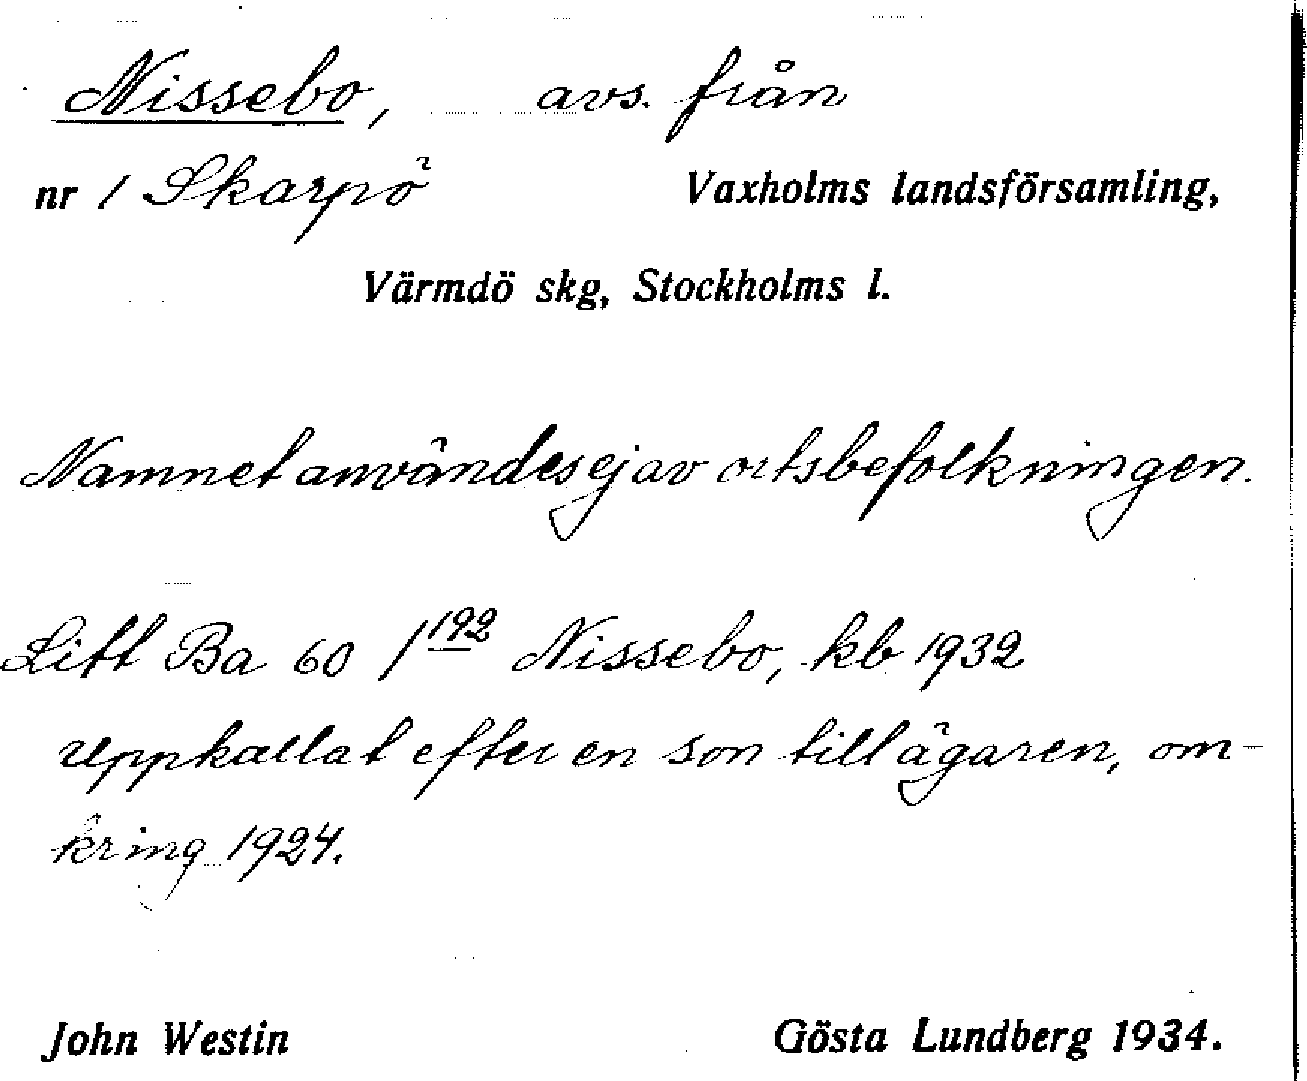 Nissebo, avs. från
nr 1 Skarpö Vaxholms landsförsamling,
Värmdö skg, Stockholms l.
Namnet användes ej av ortsbefolkningen.
Litt Ba 60 1 192 Nissebo, kb 1932
Uppkallat efter en son till ägaren, om-
kring 1924.
John Westin Gösta Lundberg 1934.